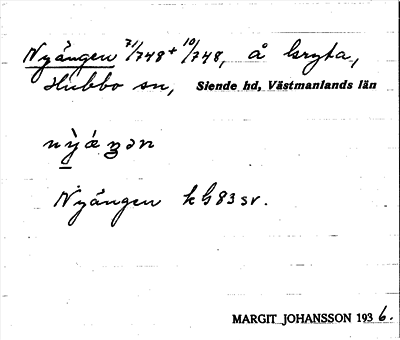 Nyängen 71/748 + 10/748, å Isryta,
Hubbo sn, Siende hd, Västmanlands län
Nyängen k G83 sv.
MARGIT JOHANSSON 1936.